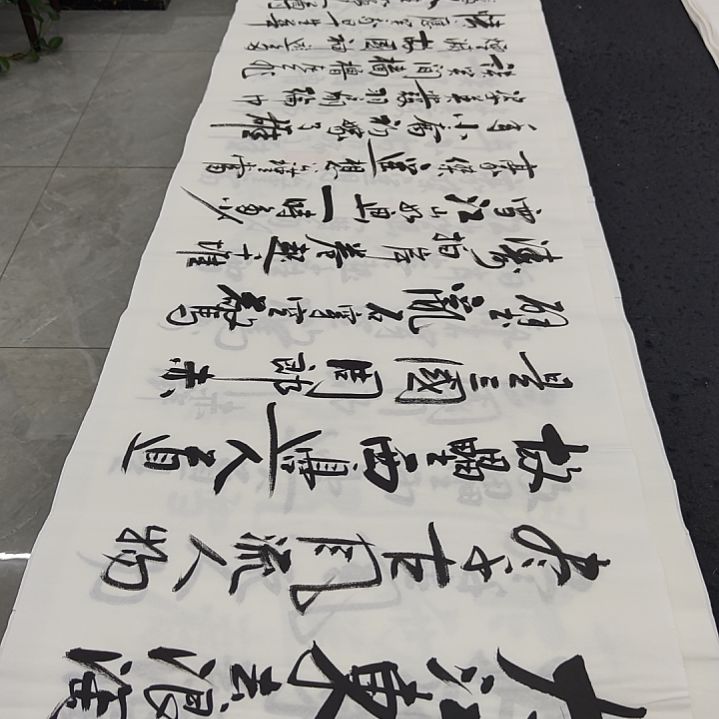 大江東去浪淘
盡千古風流人物
故壘西邊人道
是三國周郎赤
壁亂石穿空驚
濤拍岸卷起千堆
雪江山如畫一時多少
豪傑遙想公瑾當
年小喬初嫁了雄
姿英發羽扇綸巾
談笑間檣櫓灰飛
煙滅故國神遊多
情應笑我早生華